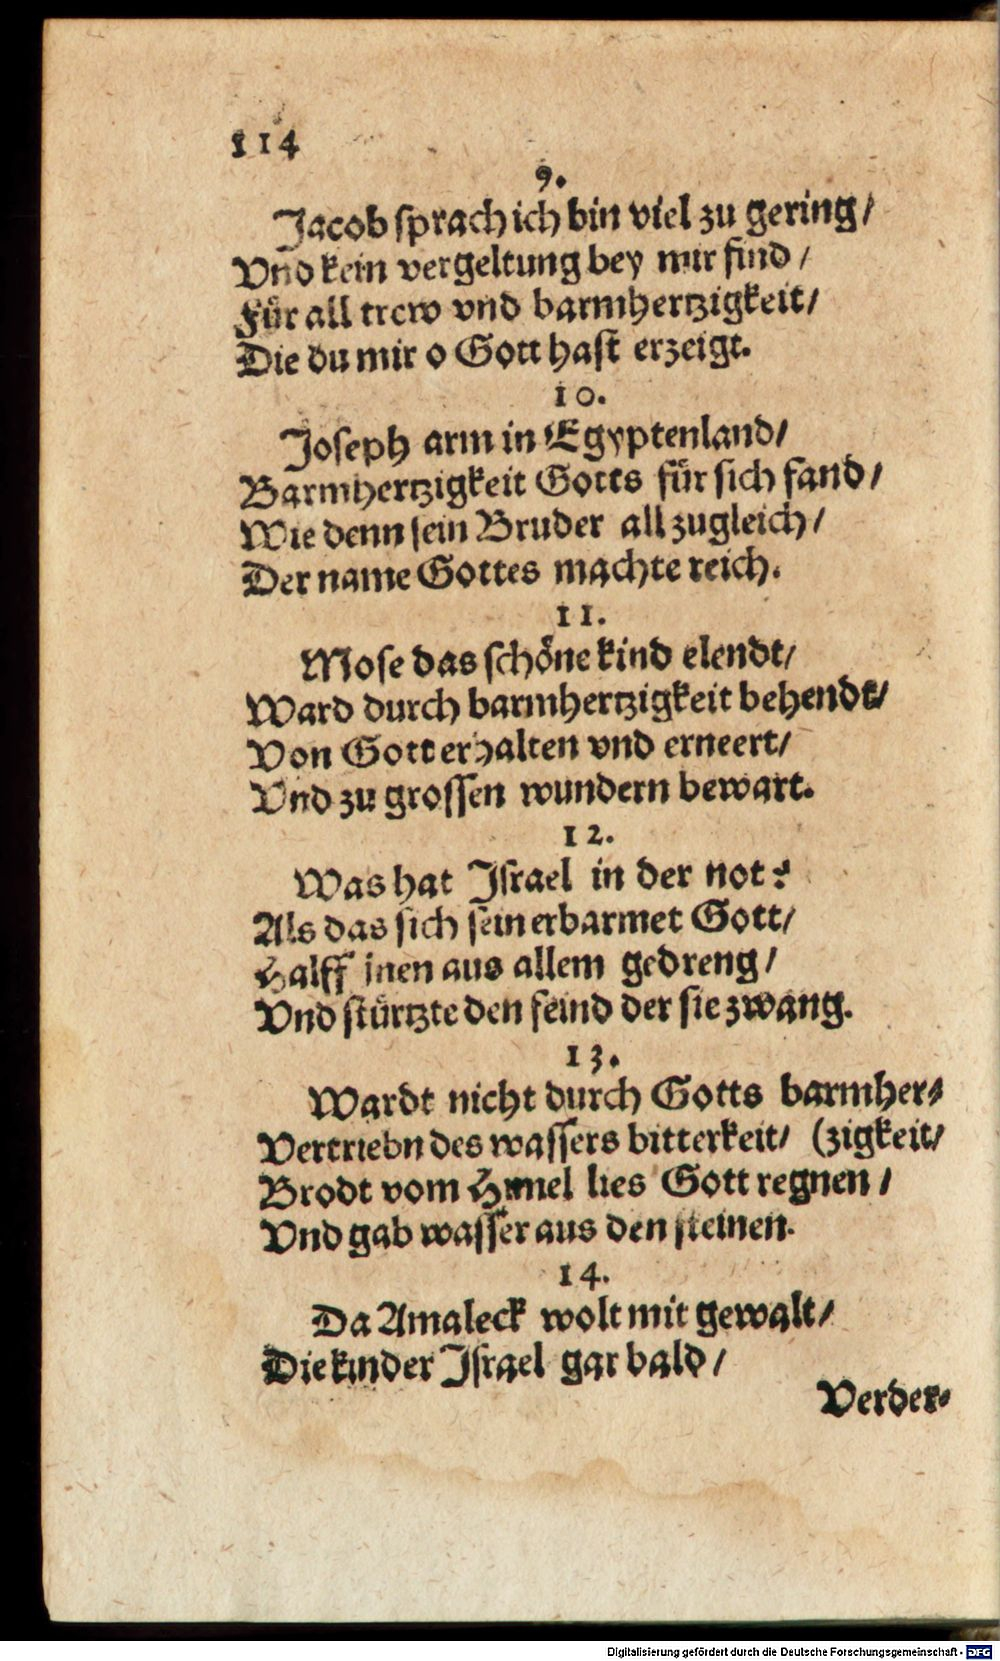 114
9.
Jacob sprach ich bin viel zu gering/
Vnd kein vergeltung bey mir find /
Für all trew vnd barmhertzigkeit/
Die du mir o Gott hast erzeigt.
10.
Joseph arm in Egyptenland/
Barmhertzigkeit Gotts für sich fand/
Wie denn sein Bruder all zugleich/
Der name Gottes machte reich.
11.
Mose das schöne kind elendt/
Ward durch barmhertzigkeit behendt/
Von Gott erhalten vnd erneert/
Vnd zu grossen wundern bewart.
12.
Was hat Israel in der not?
Als das sich sein erbarmet Gott/
Halff jnen aus allem gedreng/
Vnd stürtzte den feind der sie zwang.
13.
Wardt nicht durch Gotts barmher⸗
Vertriebn des wassers bitterkeit/ (zigkeit/
Brodt vom Himel lies Gott regnen /
Vnd gab wasser aus den steinen.
14.
Da Amaleck wolt mit gewalt/
Die kinder Israel gar bald /
Verder⸗
Digitalisierung gefördert durch die Deutsche Forschungsgemeinschaft - DFG